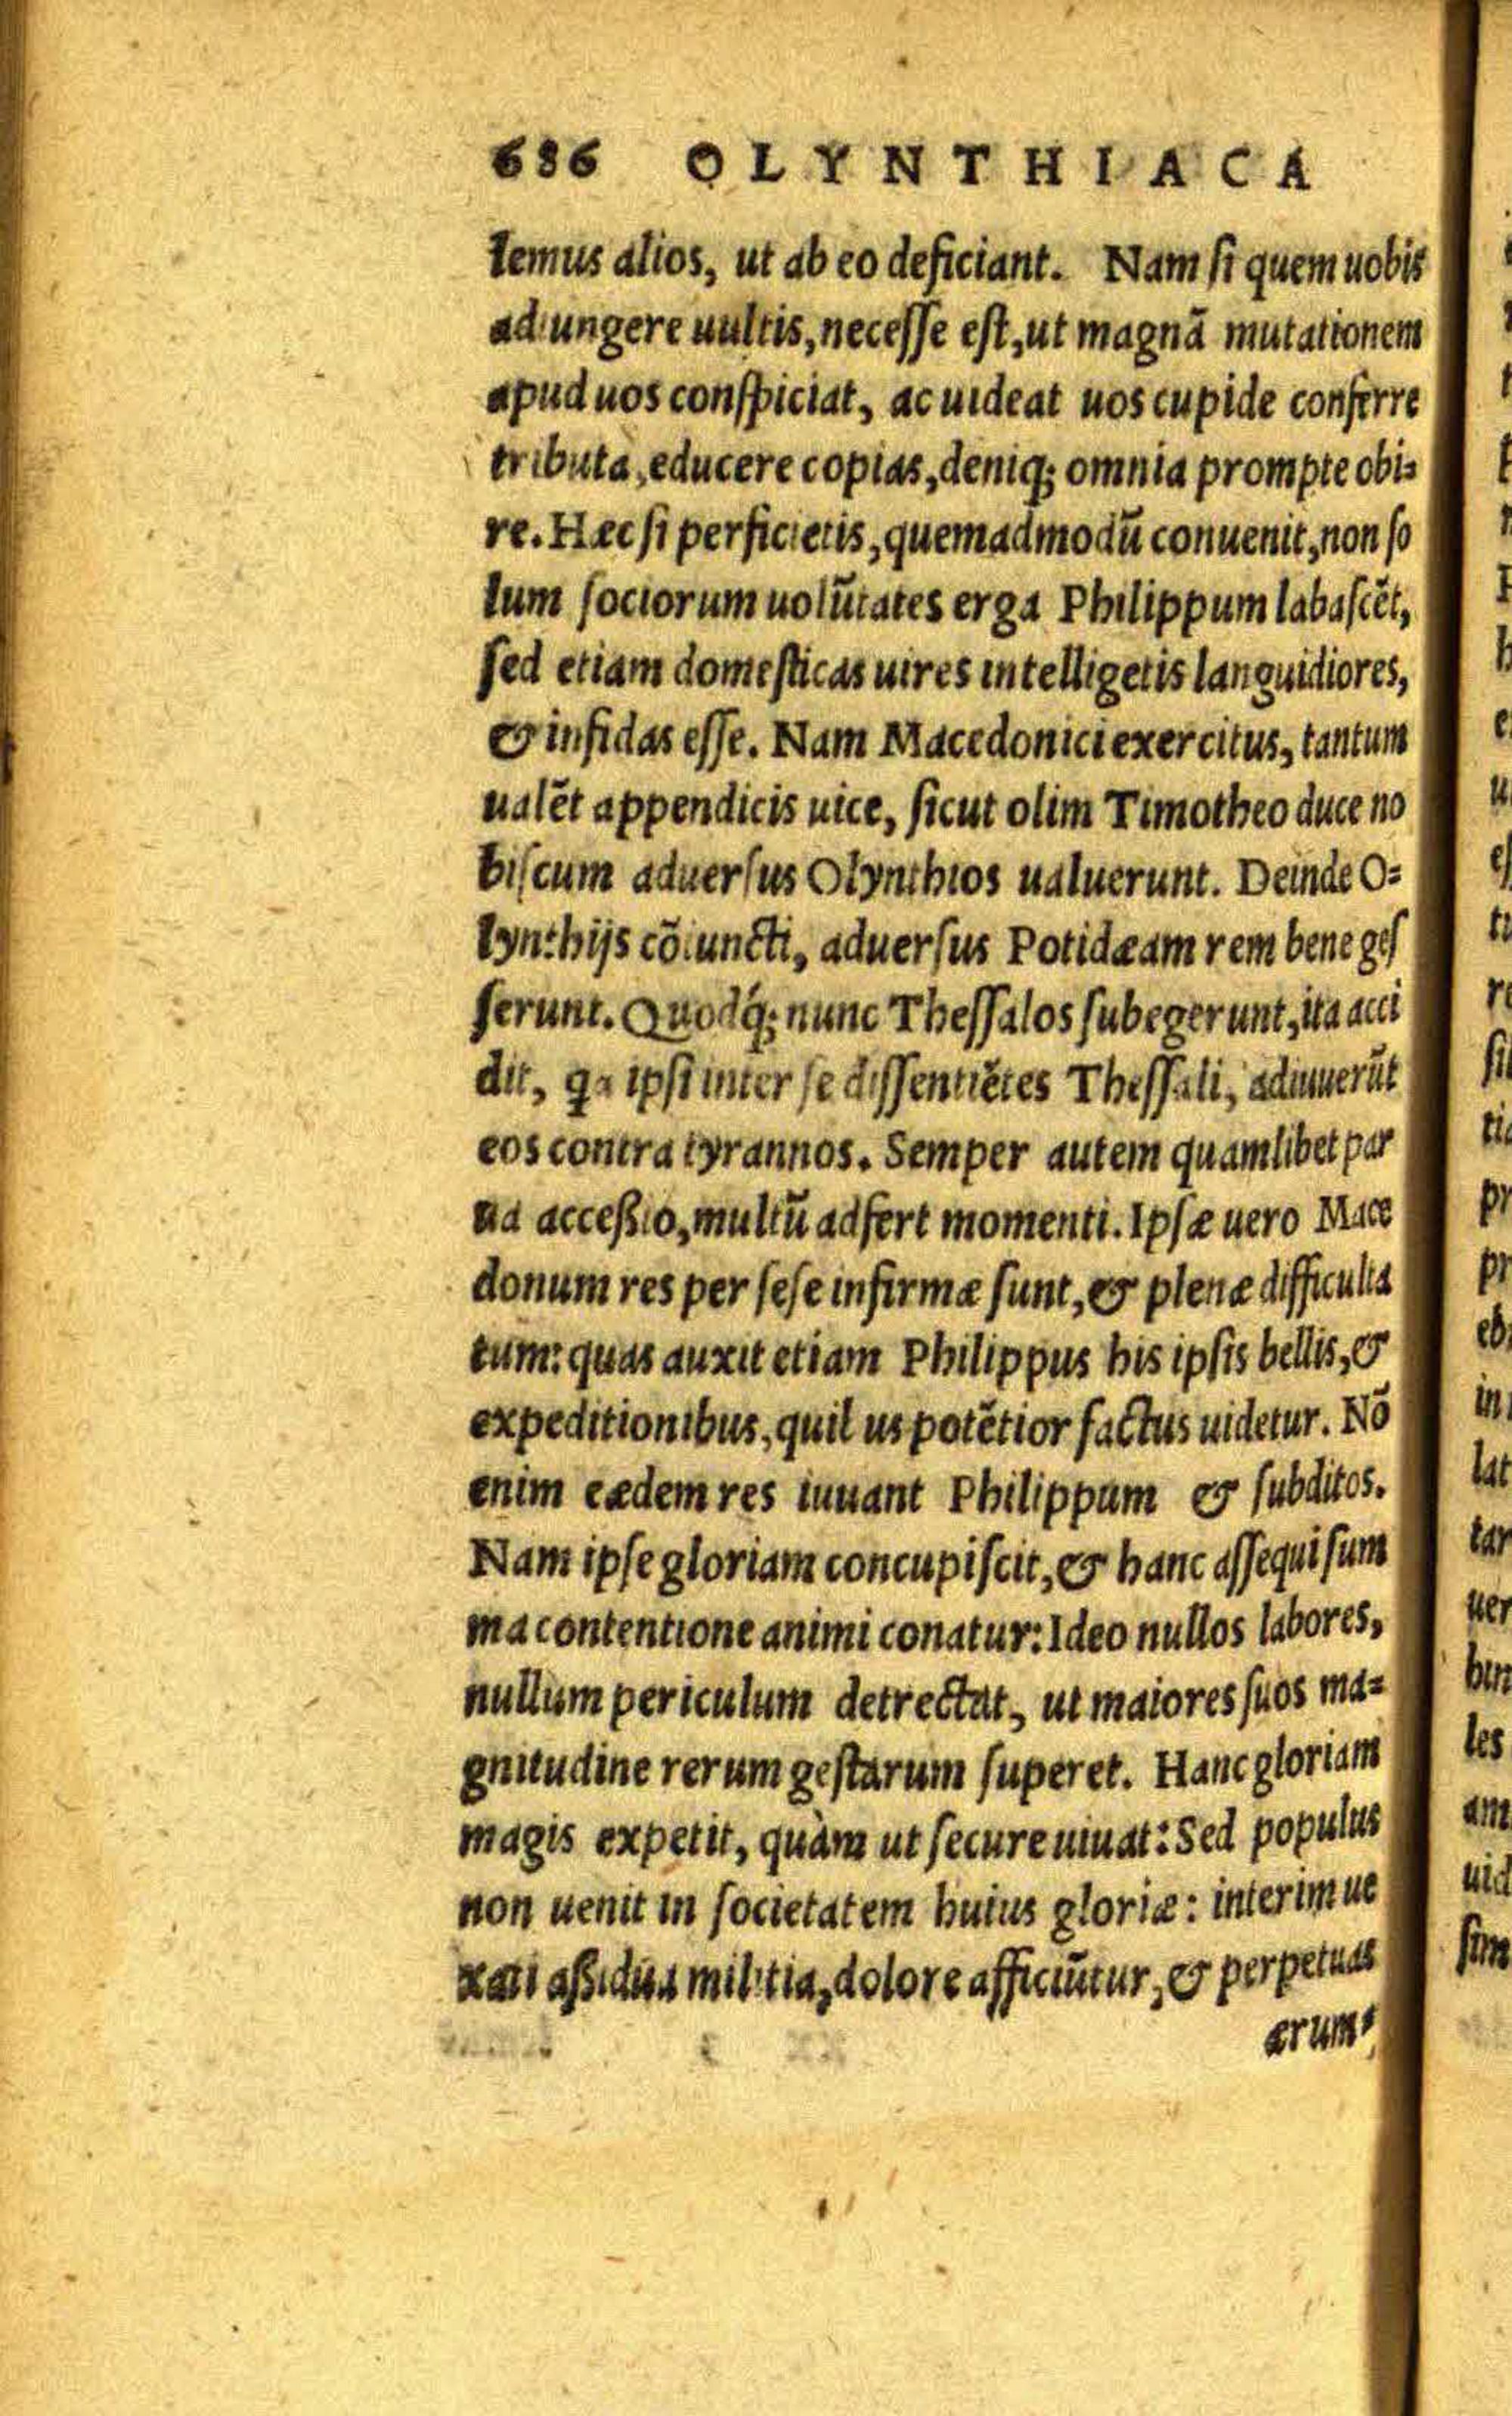 686 OLYNTHIACA
lemus alios, ut ab eo deficiant. Nam si quem uobis
adiungere uultis, necesse est, ut magnā mutationem
apud uos conspiciat, ac uideat uos cupide conferre
tributa, educere copias, deniq; omnia prompte obi=
re. Hæc si perficietis, quemadmodū conuenit, non so
lum sociorum uolūtates erga Philippum labascēt,
sed etiam domesticas uires intelligetis languidiores,
& infidas esse. Nam Macedonici exercitus, tantum
ualēt appendicis uice, sicut olim Timotheo duce no
biscum aduersus Olynthios ualuerunt. Deinde O=
lynthijs cōiuncti, aduersus Potidæam rem bene ges
serunt. Quodq́; nunc Thessalos subegerunt, ita acci
dit, qa ipsi inter se dissentiētes Thessali, adiuuerūt
eos contra tyrannos. Semper autem quamlibet par
ua acceßio, multū adfert momenti. Ipsæ uero Mace
donum res per sese infirmæ sunt, & plenæ difficulta
tum: quas auxit etiam Philippus his ipsis bellis, &
expeditionibus, quil us potētior factus uidetur. Nō
enim eædem res iuuant Philippum & subditos.
Nam ipse gloriam concupiscit, & hanc assequi sum
ma contentione animi conatur: Ideo nullos labores,
nullum periculum detrectat, ut maiores suos ma=
gnitudine rerum gestarum superet. Hanc gloriam
magis expetit, quàm ut secure uiuat: Sed populus
non uenit in societatem huius gloriæ: interim ue
xati aßidua militia, dolore afficiūtur, & perpetuas
ærum=